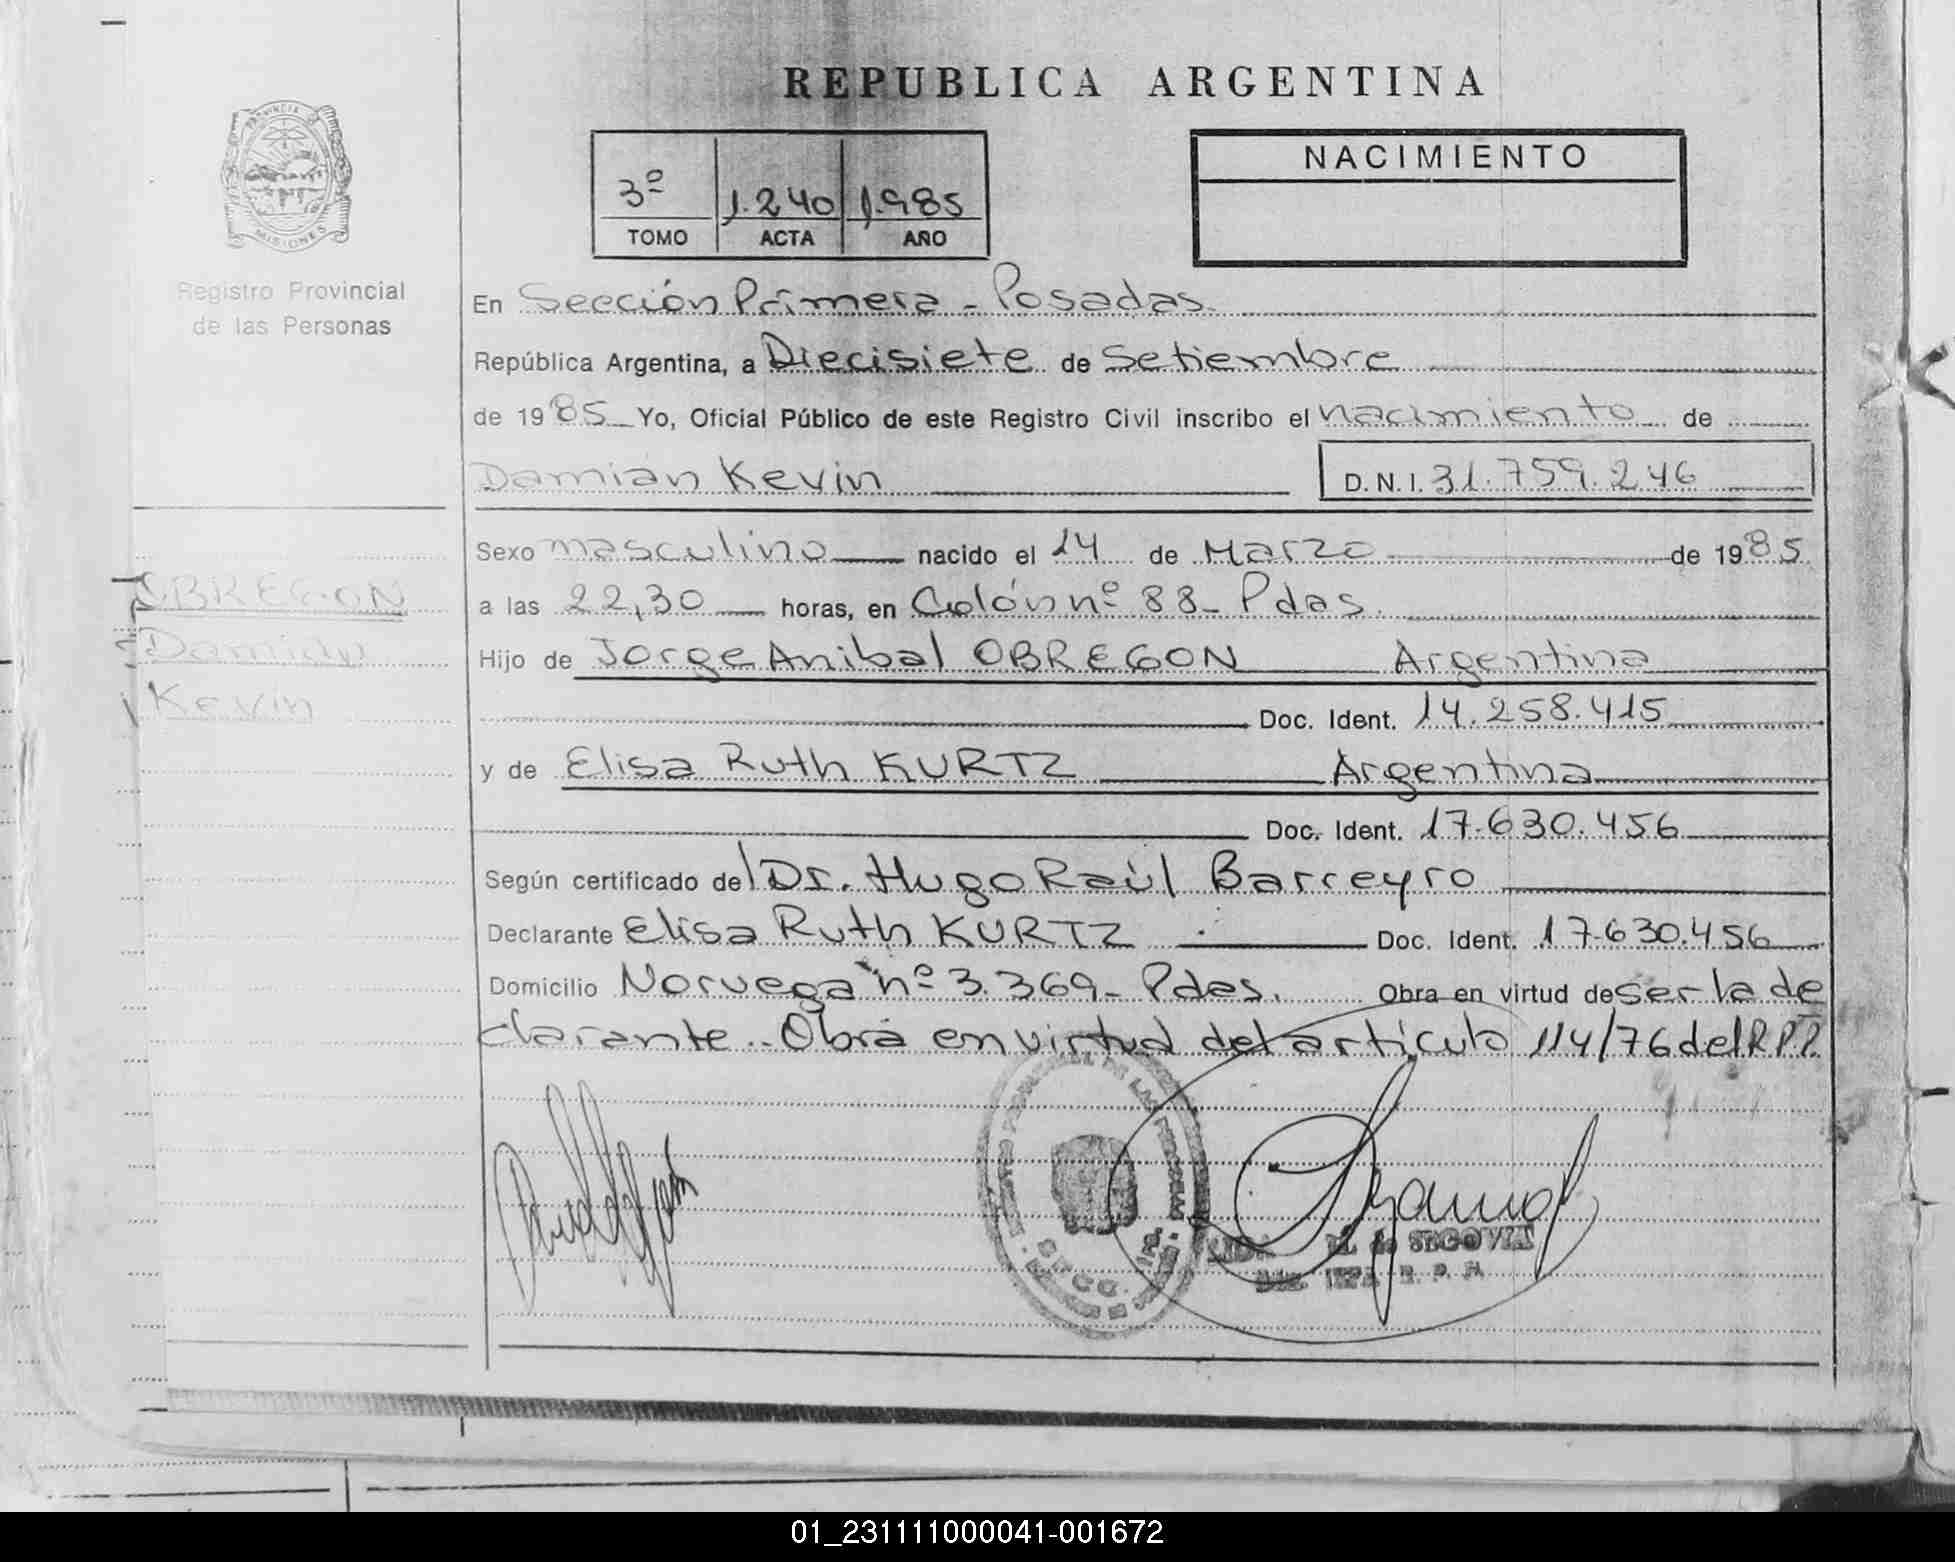 REPUBLICA ARGENTINA
PROVINCIA
MISIONES
Registro Provincial
de las Personas
3º 1.240 1.985
TOMO ACTA AÑO
NACIMIENTO
En Sección Primera - Posadas
República Argentina, a Diecisiete de Setiembre
de 1985 Yo, Oficial Público de este Registro Civil inscribo el nacimiento de
Damián Kevin D.N.I. 31.759.246
Sexo masculino nacido el 14 de Marzo de 1985
OBREGON
Damián
Kevin
a las 22,30 horas, en Colón nº 88- Pdas.
Hijo de Jorge Anibal OBREGON Argentina
Doc. Ident. 14.258.415
y de Elisa Ruth KURTZ Argentina
Doc. Ident. 17.630.456
Según certificado del Dr. Hugo Raúl Barreyro
Declarante Elisa Ruth KURTZ Doc. Ident. 17.630.456
Domicilio Norvega nº 3.369- Pdas. Obra en virtud de ser la de
clarante.. Obra en virtud del artículo 114/76 del R.P.P.
DE LAS PERSONAS
SECC. 1ra.
de SEGOVIA
01_231111000041-001672